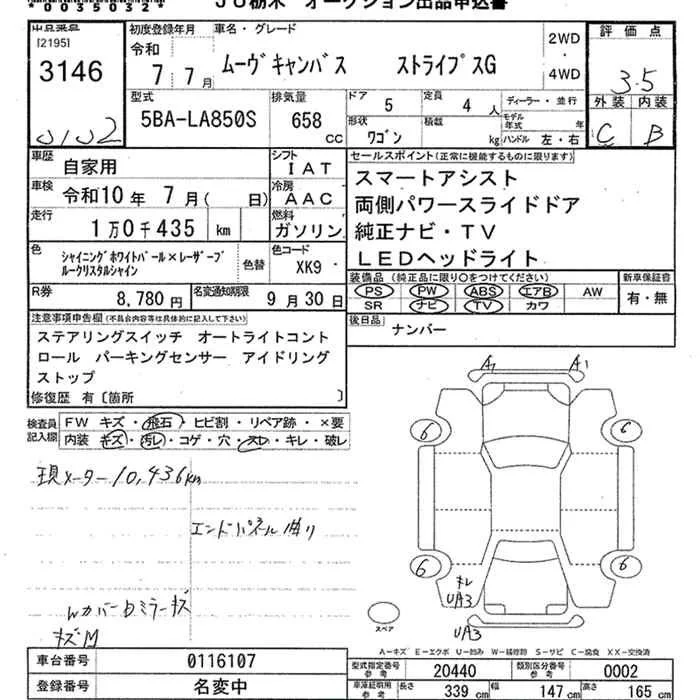 *0055032*
JU栃木 オークション出品申込書
出品番号
[2195]
3146
初度登録年月
令和
7 7月
車名・グレード
ムーヴキャンバス ストライプスG
2WD
・
4WD
評価点
3.5
外装 内装
C B
型式
5BA-LA850S
排気量
658
cc
ドア 5
定員 4 人
形状 ワゴン
積載 kg
ディーラー・並行
モデル年式 年
ハンドル 左・右
車歴 自家用
シフト IAT
車検 令和10年 7月( 日)
冷房 AAC
走行 1万0千435 km
燃料 ガソリン
色 シャイニングホワイトパール×レーザーブルークリスタルシャイン
色替
色コード XK9
R券 8,780円
名変通知期限 9月30日
セールスポイント(正常に機能するものに限ります)
スマートアシスト
両側パワースライドドア
純正ナビ・TV
LEDヘッドライト
装備品 (純正品に限り○をつけてください)
新車保証書
PS PW ABS エアB AW
SR ナビ TV カワ
有・無
後日品 ナンバー
注意事項申告欄(不具合内容等は具体的に記入して下さい)
ステアリングスイッチ オートライトコント
ロール パーキングセンサー アイドリング
ストップ
修復歴 有〔箇所 〕
検査員記入欄
FW キズ・飛石・ヒビ割・リペア跡・×要
内装 キズ・汚レ・コゲ・穴・スレ・キレ・破レ
現メーター10,436km
エンドパネル曲り
キズM
A1 A1
6 6
6 6
UA3
UA3
スペア
A-キズ E-エクボ U-凹み W-補修跡 S-サビ C-腐食 XX-交換済
車台番号 0116107
型式指定番号参考 20440
類別区分番号参考 0002
登録番号 名変中
車庫証明用参考
長さ 339 cm
幅 147 cm
高さ 165 cm